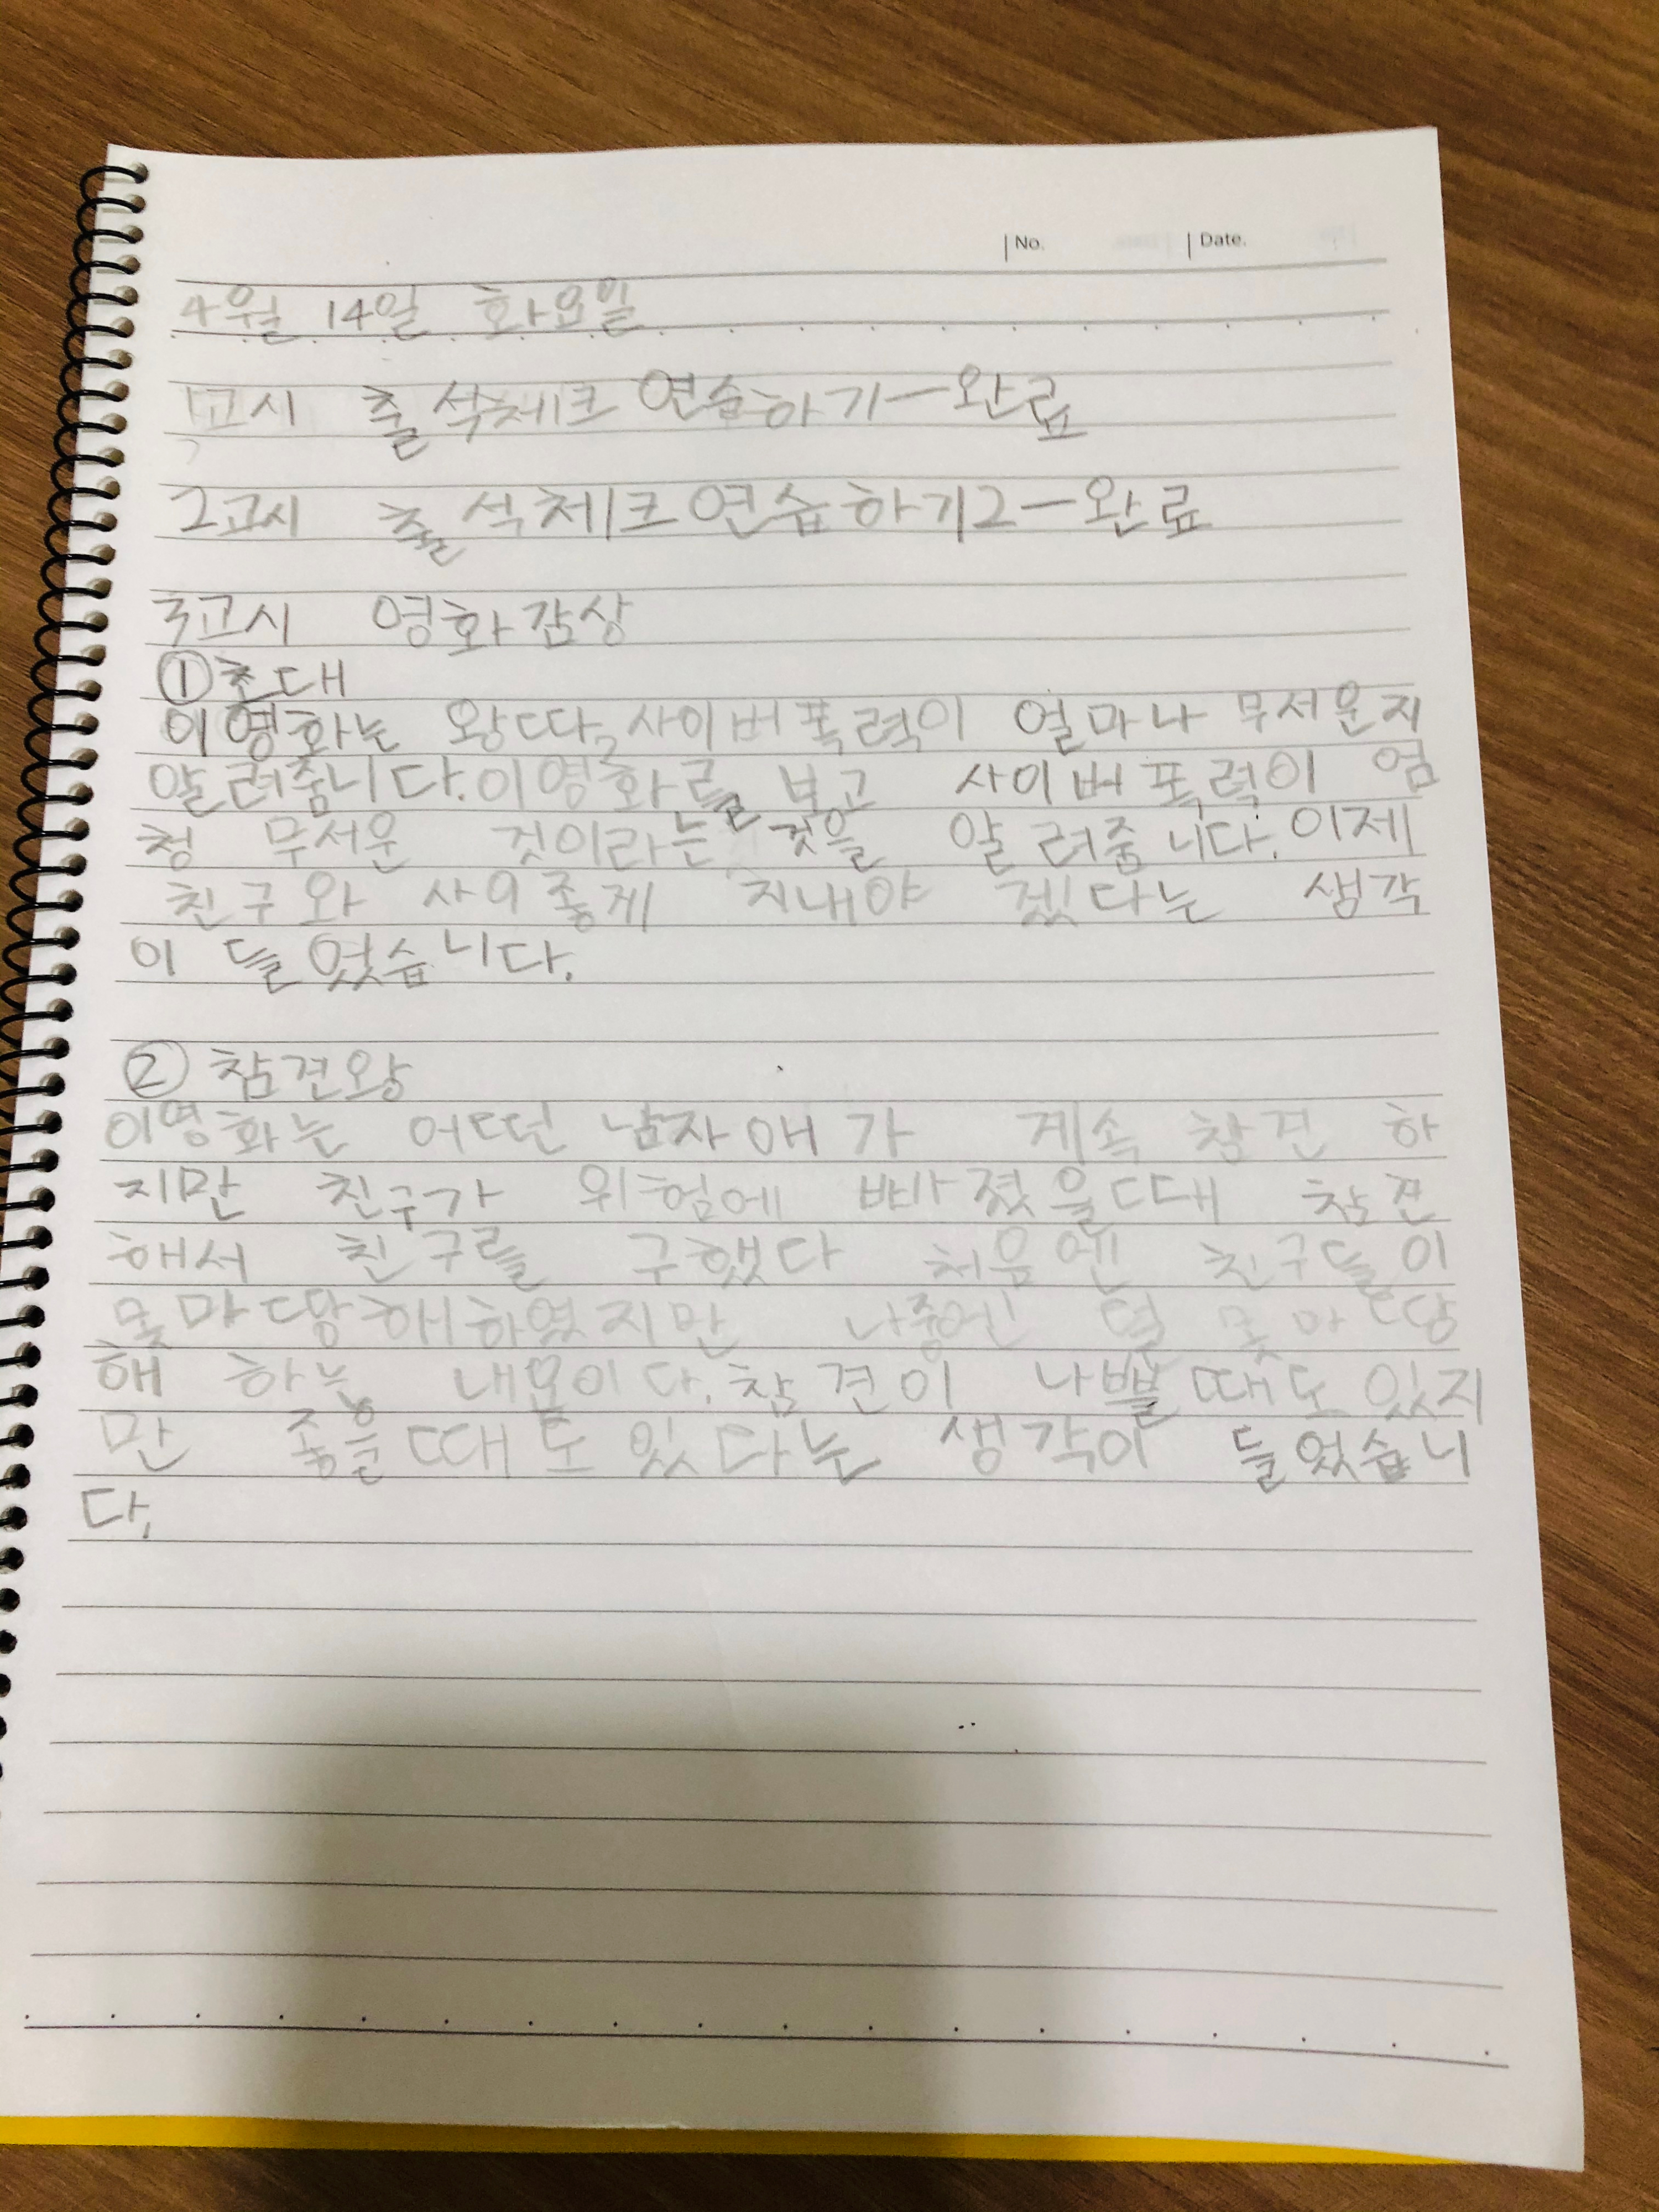 No. Date.
4월 14일 화요일
1교시 출석체크 연습하기-완료
2교시 출석체크 연습하기2-완료
3교시 영화감상
①초대
이영화는 왕따,사이버폭력이 얼마나 무서운지
알려줍니다.이영화를 보고 사이버폭력이 엄
청 무서운 것이라는 것을 알려줍니다.이제
친구와 사이좋게 지내야 겠다는 생각
이 들었습니다.
② 참견왕
이영화는 어떤 남자애가 계속 참견 하
지만 친구가 위험에 빠졌을때 참견
해서 친구를 구했다 처음엔 친구들이
못마땅해하였지만 나중엔 덜 못마땅
해 하는 내용이다.참견이 나쁠때도 있지
만 좋을때도 있다는 생각이 들었습니
다.